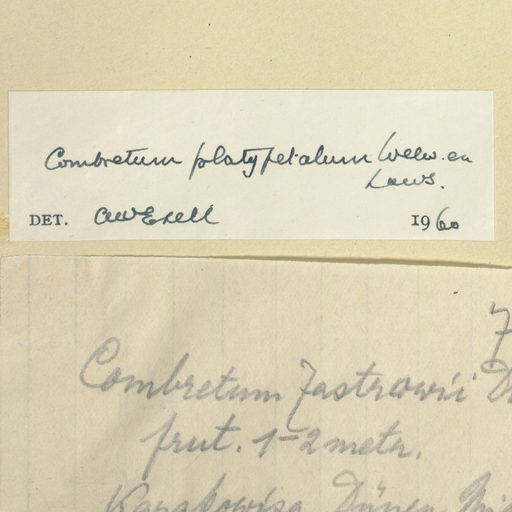 Combretum platypetalum Welw. ex
Laws.
DET. AW Exell 1960
7
Combretum Zastrowii D
frut. 1-2 metr.
Karakowisa Dünen